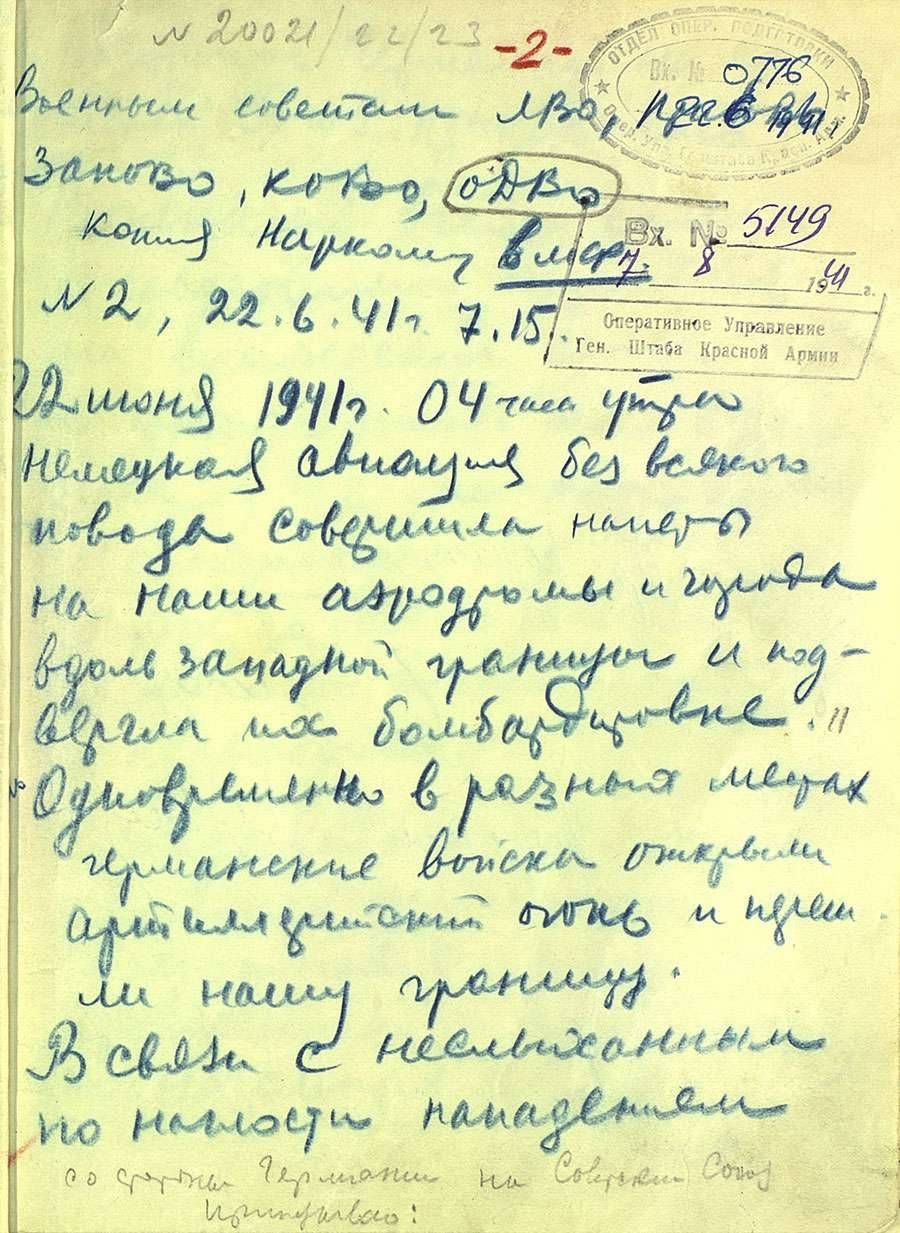 N 20021/22/23
-2-
ОТДЕЛ ОПЕР. ПОДГОТОВКИ
Вх. № 0776
22.6 1941 г.
Опер. Упр. Генштаба Красн. Арм.
Военным советам ЛВО, Прибово,
Заново, КОВО, ОДВО
копия Наркому ВМФ
Вх. № 5149
7. 8 1941 г.
Оперативное Управление
Ген. Штаба Красной Армии
N 2, 22.6.41г. 7.15.
22 июня 1941г. 04 часа утра
немецкая авиация без всякого
повода совершила налеты
на наши аэродромы и города
вдоль западной границы и под-
вергла их бомбардировке.
Одновременно в разных местах
германские войска открыли
артиллерийский огонь и переш
ли нашу границу.
В связи с неслыханным
по наглости нападением
со стороны Германии на Советский Союз
Приказываю: